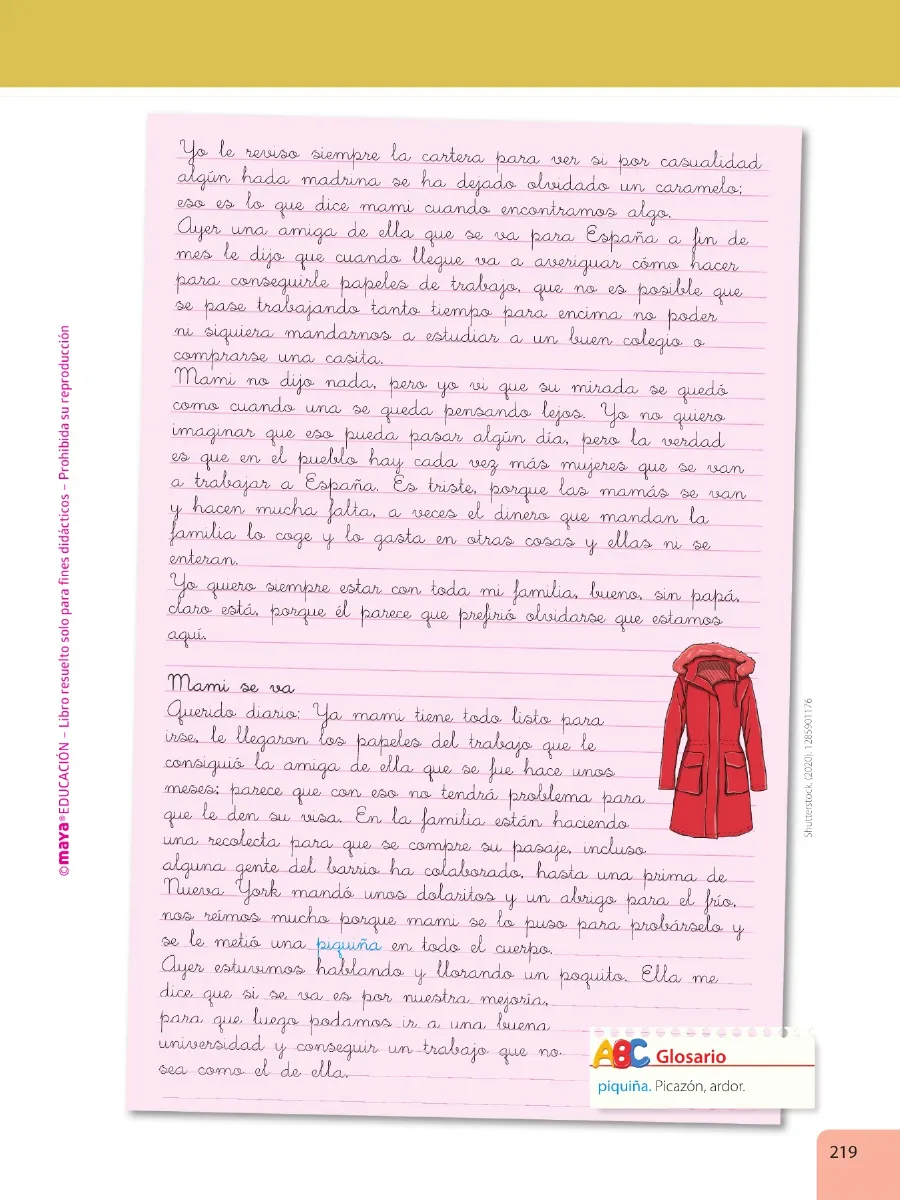 Yo le reviso siempre la cartera para ver si por casualidad
algún hada madrina se ha dejado olvidado un caramelo;
eso es lo que dice mami cuando encontramos algo.
Ayer una amiga de ella que se va para España a fin de
mes le dijo que cuando llegue va a averiguar cómo hacer
para conseguirle papeles de trabajo, que no es posible que
se pase trabajando tanto tiempo para encima no poder
ni siquiera mandarnos a estudiar a un buen colegio o
comprarse una casita.
Mami no dijo nada, pero yo vi que su mirada se quedó
como cuando una se queda pensando lejos. Yo no quiero
imaginar que eso pueda pasar algún día, pero la verdad
es que en el pueblo hay cada vez más mujeres que se van
a trabajar a España. Es triste, porque las mamás se van
y hacen mucha falta, a veces el dinero que mandan la
familia lo coge y lo gasta en otras cosas y ellas ni se
enteran.
Yo quiero siempre estar con toda mi familia, bueno, sin papá,
claro está, porque él parece que prefirió olvidarse que estamos
aquí.
Mami se va
Querido diario: Ya mami tiene todo listo para
irse, le llegaron los papeles del trabajo que le
consiguió la amiga de ella que se fue hace unos
meses; parece que con eso no tendrá problema para
que le den su visa. En la familia están haciendo
una recolecta para que se compre su pasaje, incluso
alguna gente del barrio ha colaborado, hasta una prima de
Nueva York mandó unos dolaritos y un abrigo para el frío,
nos reímos mucho porque mami se lo puso para probárselo y
se le metió una piquiña en todo el cuerpo.
Ayer estuvimos hablando y llorando un poquito. Ella me
dice que si se va es por nuestra mejoría,
para que luego podamos ir a una buena
universidad y conseguir un trabajo que no
sea como el de ella.
ABC Glosario
piquiña. Picazón, ardor.
©maya®EDUCACIÓN – Libro resuelto solo para fines didácticos – Prohibida su reproducción
Shutterstock, (2020), 1285901176
219